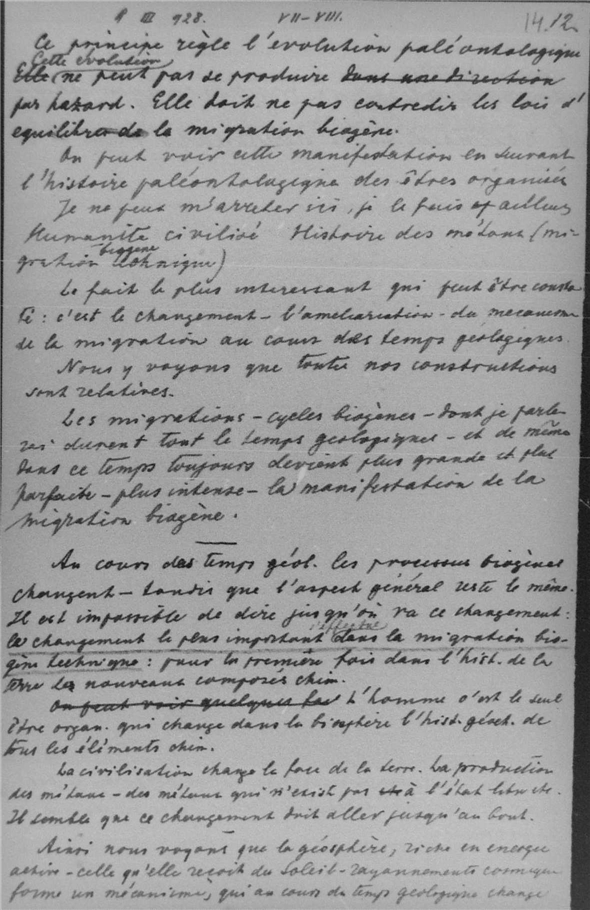 9 III 928. VII-VIII. 14.12.
Ce principe règle l'évolution paléontologique
Cette évolution
Elle ne peut pas se produire dans une direction
par hazard. Elle doit ne pas contredir les lois d'
equilibre de la migration biogène.
On peut voir cette manifestation en suivant
l'histoire paléontologique des êtres organisés
Je ne peux m'arreter ici, je le fais ailleurs
Humanité civilisé Histoire des métaux (mi-
biogène
gration technique)
Le fait le plus interessant qui peut être consta-
té: c'est le changement - l'amelioration - du mecanisme
de la migration au cours des temps géologiques.
Nous y voyons que toutes nos constructions
sont relatives.
Les migrations - cycles biogènes - dont je parle-
rai durent tout le temps geologiques - et de même
dans ce temps toujours devient plus grande et plus
parfaite - plus intense - la manifestation de la
migration biogène.
Au cours des temps géol. les processus biogènes
changent - tandis que l'aspect général reste le même.
Il est impossible de dire jusqu'où va ce changement:
s'effectue
le changement le plus important dans la migration bio-
gène technique: pour la première fois dans l'hist. de la
terre de nouveaux composés chim.
On peut voir quelques L'homme c'est le seul
être organ. qui change dans la biosphère l'hist. géoch. de
tous les éléments chim.
La civilisation change la face de la terre. La production
des métaux - des métaux qui n'exist pas à l'état
Il semble que ce changement doit aller jusqu'au bout.
Ainsi nous voyons que la géosphère, riche en energie
active - celle qu'elle reçoit du Soleil - rayonnements cosmiques
forme un mécanisme, qui au cours du temps geologique change